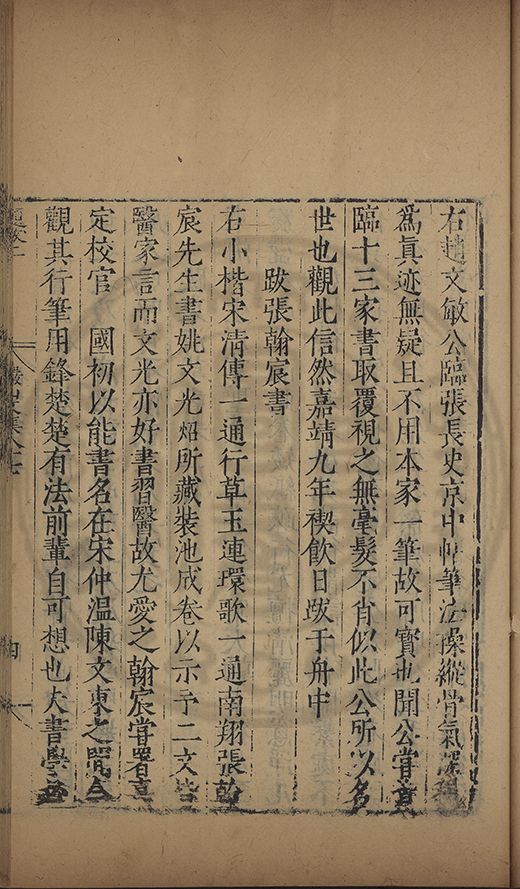 右趙文敏公臨張長史京中帖筆法操縱骨氣深
為真迹無疑且不用本家一筆故可寳也聞公嘗
臨十三家書取覆視之無毫髮不肖似此公所以名
世也觀此信然嘉靖九年禊飲日跋于舟中
跋張翰宸書
右小楷宋清傳一通行草玉連環歌一通南翔張翰
宸先生書姚文光炤所藏裝池成卷以示予二文皆
醫家言而文光亦好書習醫故尤愛之翰宸嘗署嘉
定校官 國初以能書名在宋仲温陳文東之間今
觀其行筆用鋒楚楚有法前輩自可想也夫書學
四